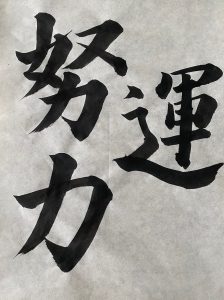 運
努力